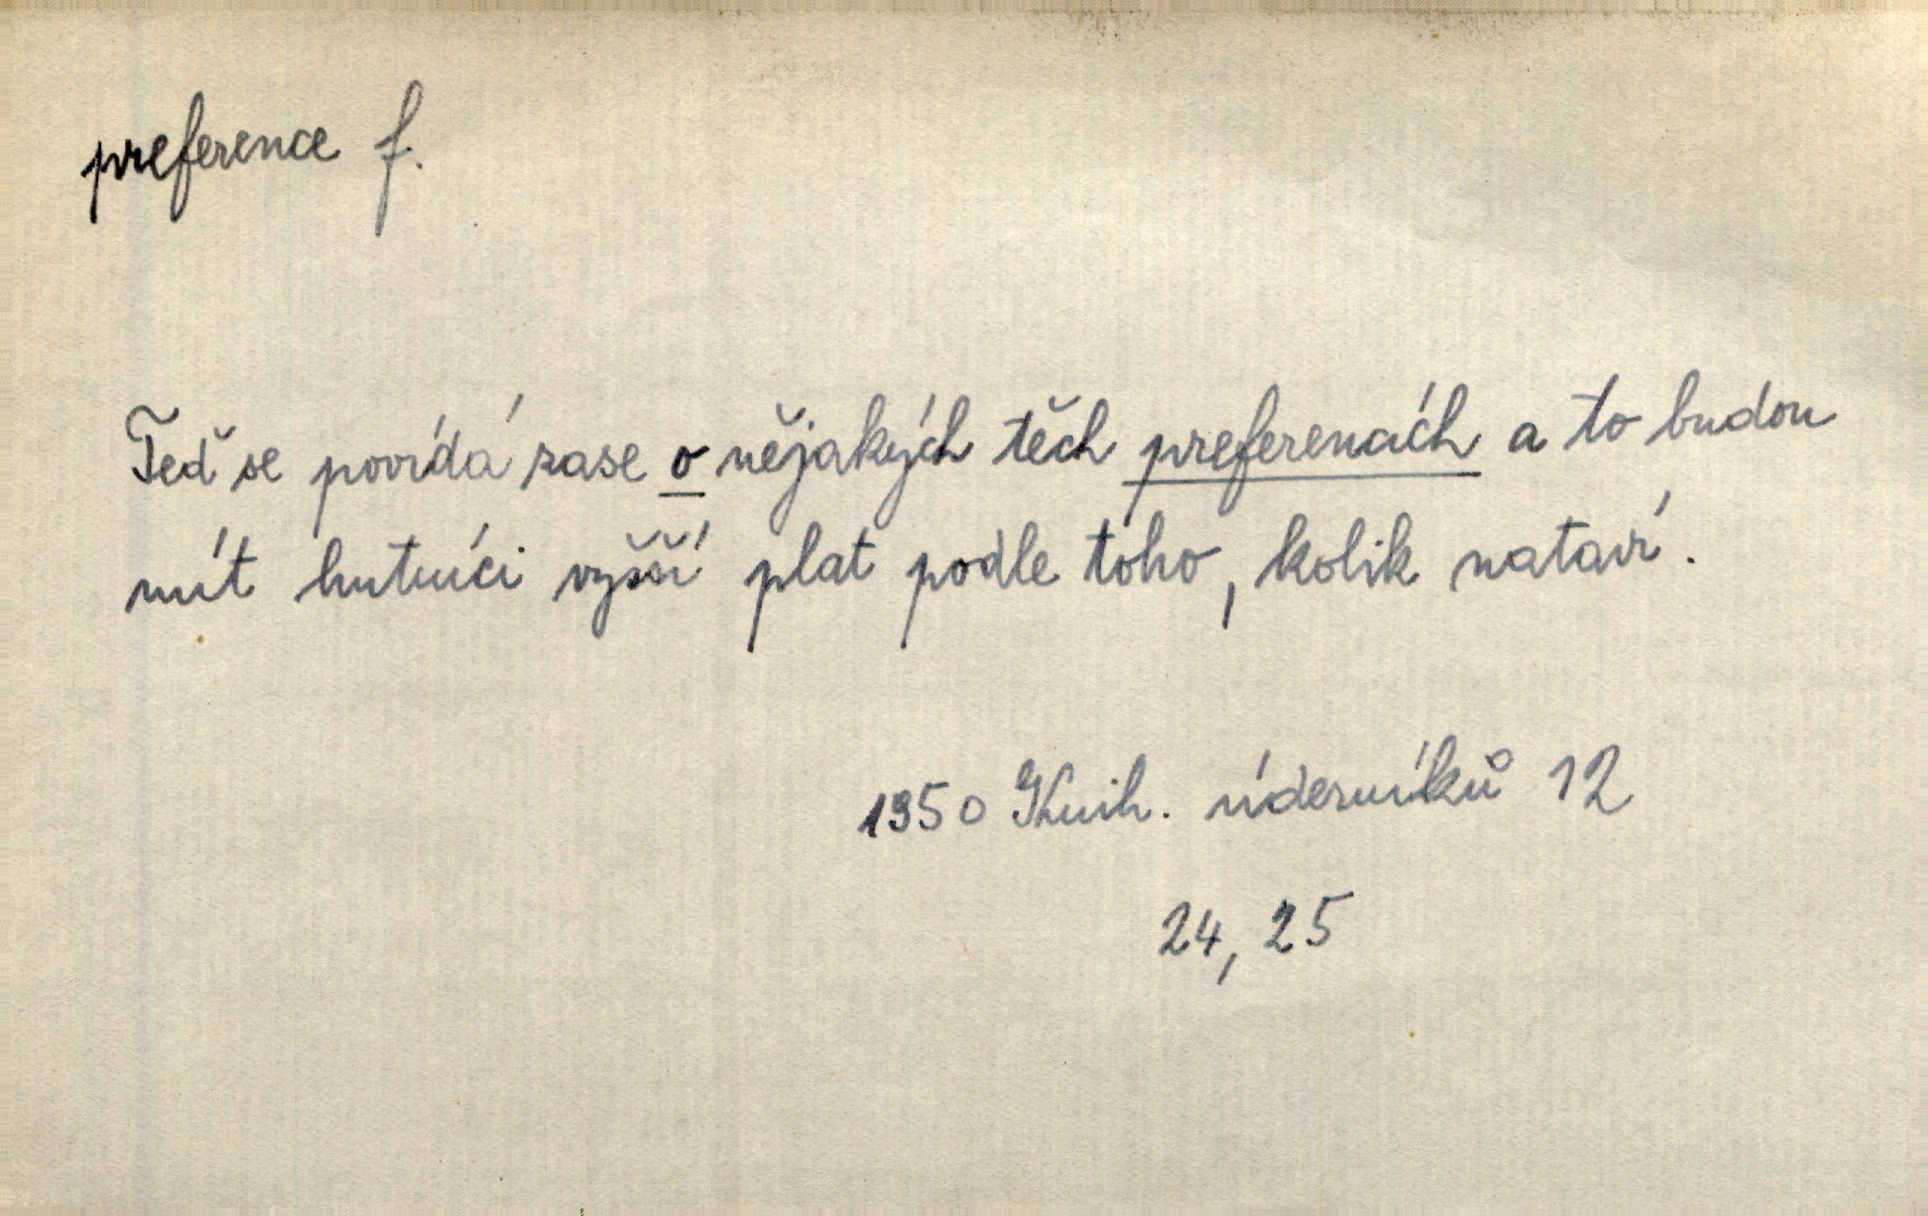 preference f.
Teď se povídá zase o nějakých těch preferenacích a to budou
mít hutníci vyšší plat podle toho, kolik nataví.
1950 Knih. úderníků 12
24, 25